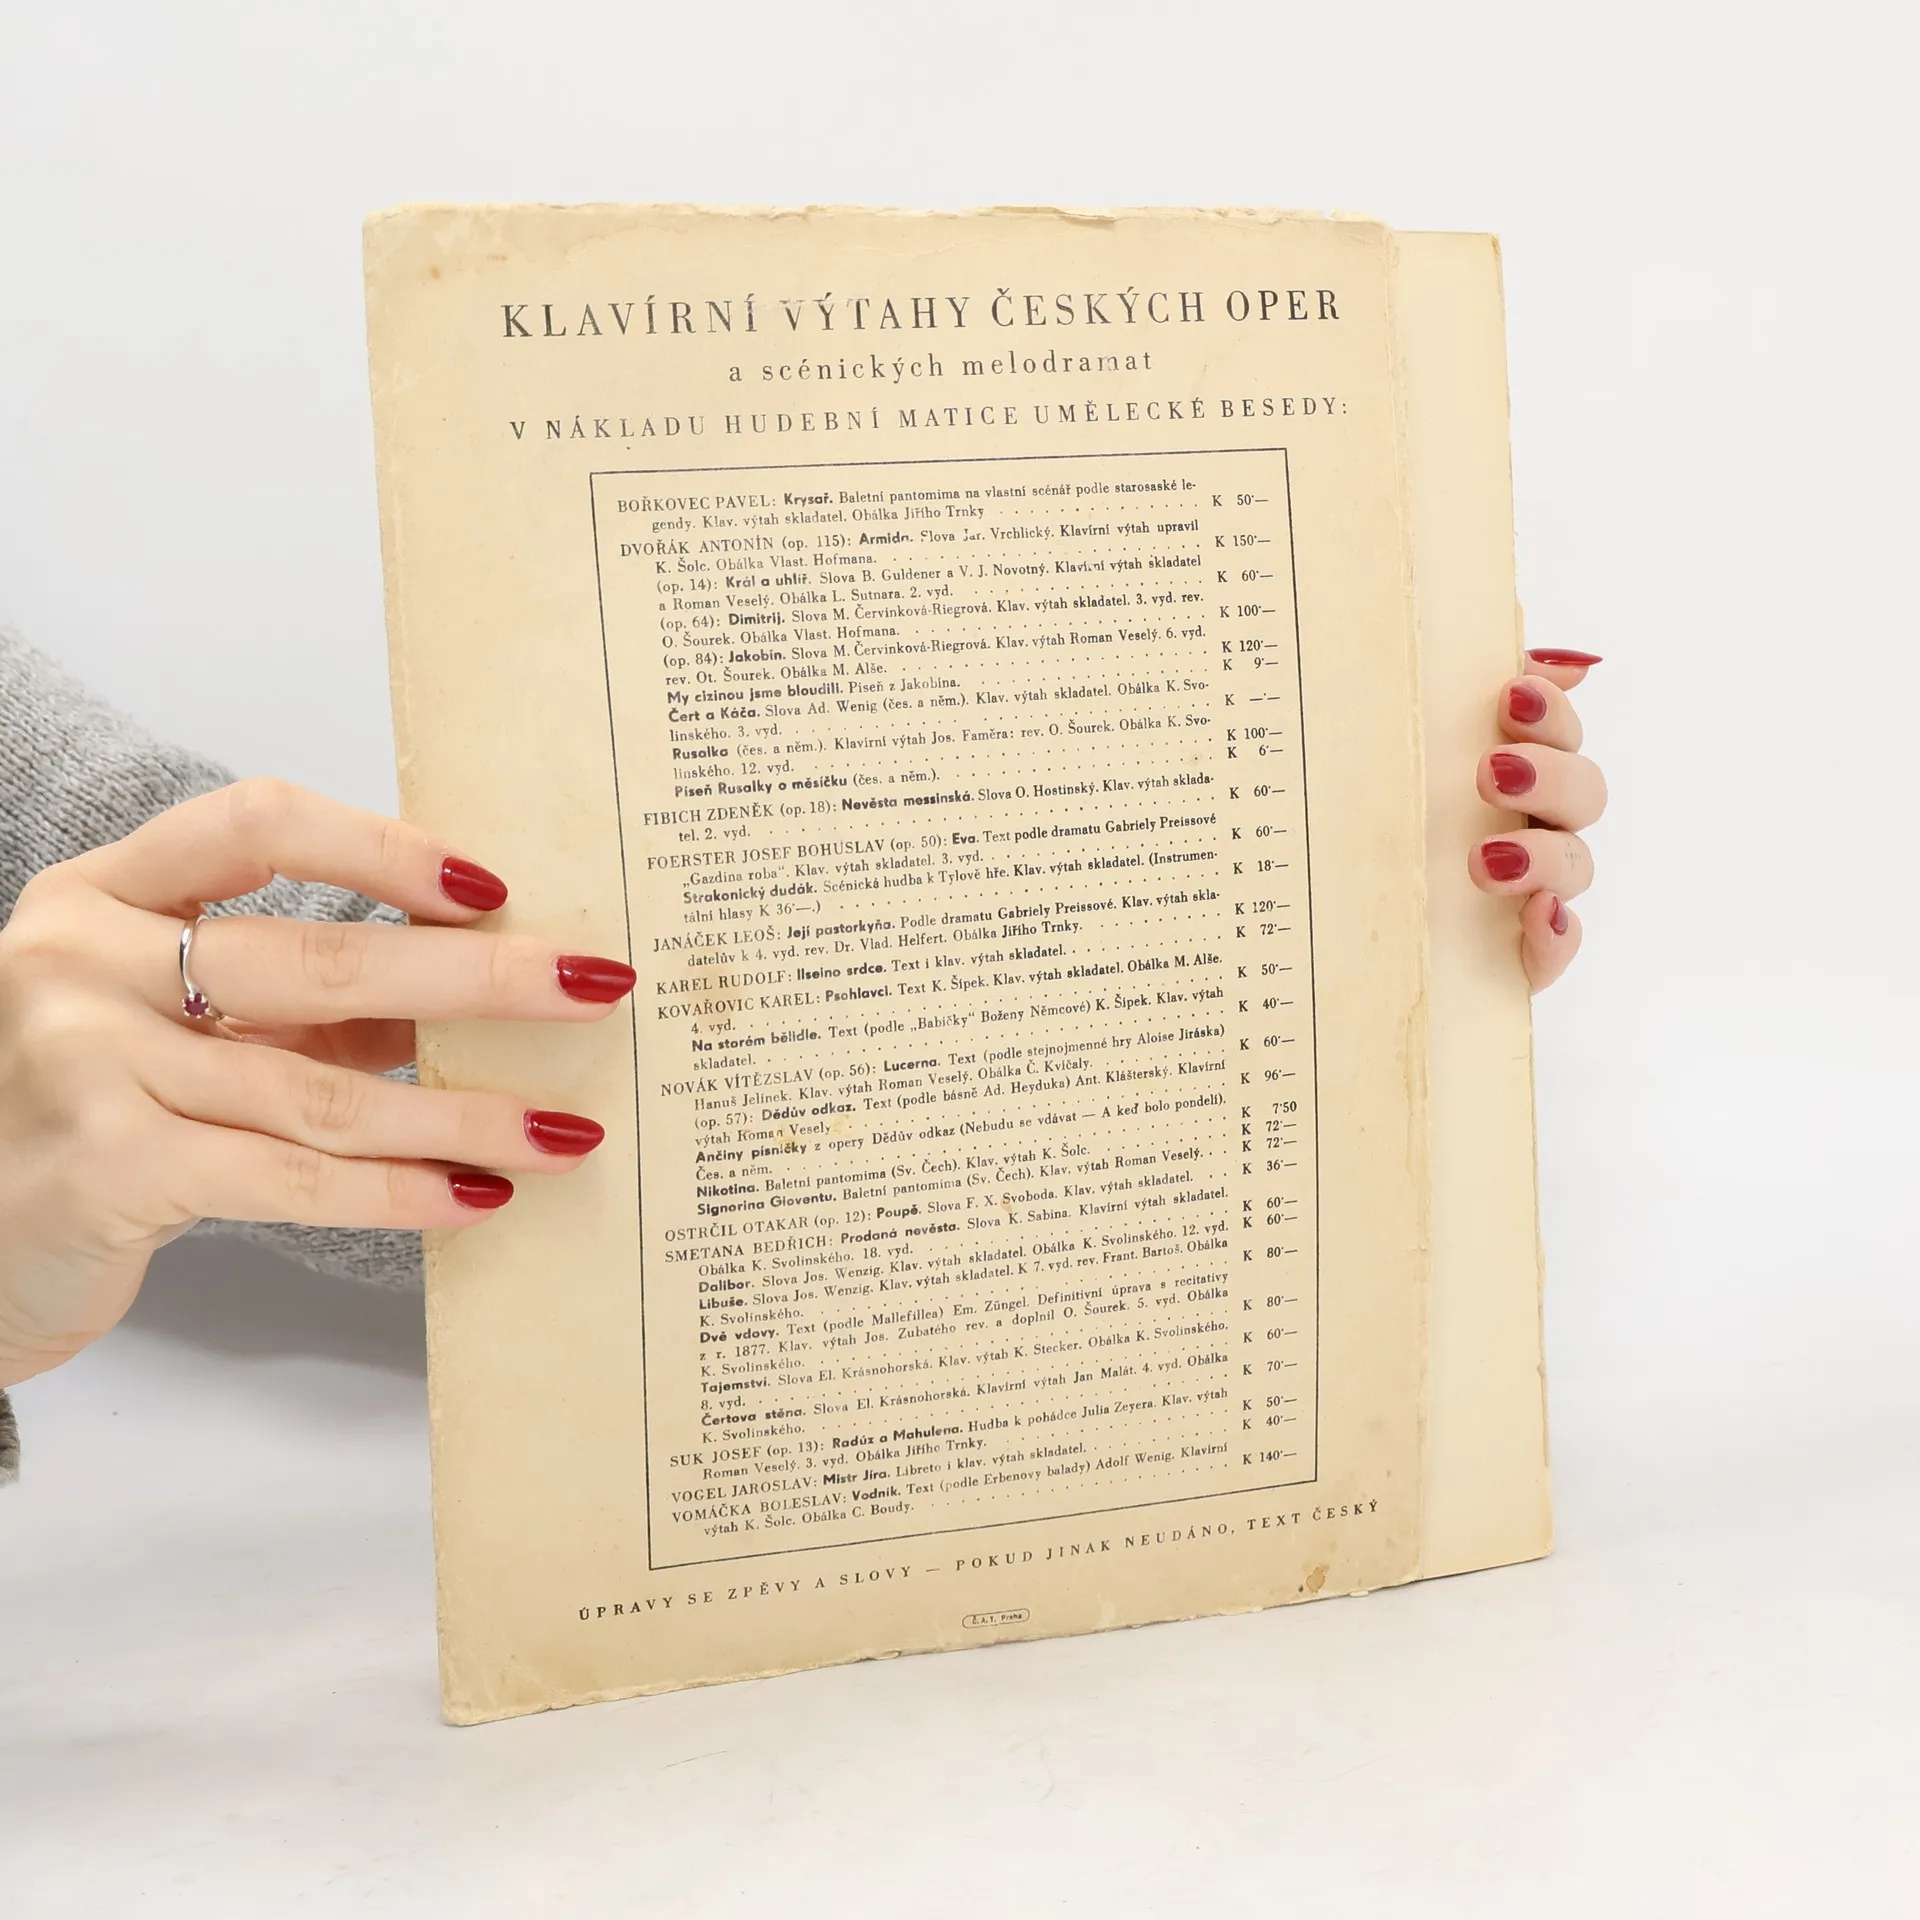 KLAVÍRNÍ VÝTAHY ČESKÝCH OPER
a scénických melodramat
V NÁKLADU HUDEBNÍ MATICE UMĚLECKÉ BESEDY:
BOŘKOVEC PAVEL: Krysař. Baletní pantomima na vlastní scénář podle starosaské le-
gendy. Klav. výtah skladatel. Obálka Jiřího Trnky . . . . . . . . . . . . K 50·—
DVOŘÁK ANTONÍN (op. 115): Armida. Slova Jar. Vrchlický. Klavírní výtah upravil
K. Šolc. Obálka Vlast. Hofmana. . . . . . . . . . . . K 150·—
(op. 14): Král a uhlíř. Slova B. Guldener a V. J. Novotný. Klavírní výtah skladatel
a Roman Veselý. Obálka L. Sutnara. 2. vyd. . . . . . . . . . . . K 60·—
(op. 64): Dimitrij. Slova M. Červinková-Riegrová. Klav. výtah skladatel. 3. vyd. rev.
O. Šourek. Obálka Vlast. Hofmana. . . . . . . . . . . . K 100·—
(op. 84): Jakobín. Slova M. Červinková-Riegrová. Klav. výtah Roman Veselý. 6. vyd.
rev. Ot. Šourek. Obálka M. Alše. . . . . . . . . . . . K 120·—
My cizinou jsme bloudili. Píseň z Jakobína. . . . . . . . . . . . K 9·—
Čert a Káča. Slova Ad. Wenig (čes. a něm.). Klav. výtah skladatel. Obálka K. Svo-
linského. 3. vyd. . . . . . . . . . . . K —·—
Rusalka (čes. a něm.). Klavírní výtah Jos. Faměra: rev. O. Šourek. Obálka K. Svo-
linského. 12. vyd. . . . . . . . . . . . K 100·—
Píseň Rusalky o měsíčku (čes. a něm.). . . . . . . . . . . . K 6·—
FIBICH ZDENĚK (op. 18): Nevěsta messinská. Slova O. Hostinský. Klav. výtah sklada-
tel. 2. vyd. . . . . . . . . . . . K 60·—
FOERSTER JOSEF BOHUSLAV (op. 50): Eva. Text podle dramatu Gabriely Preissové
„Gazdina roba“. Klav. výtah skladatel. 3. vyd. . . . . . . . . . . . K 60·—
Strakonický dudák. Scénická hudba k Tylově hře. Klav. výtah skladatel. (Instrumen-
tální hlasy K 36·—.) . . . . . . . . . . . K 18·—
JANÁČEK LEOŠ: Její pastorkyňa. Podle dramatu Gabriely Preissové. Klav. výtah skla-
datelův k 4. vyd. rev. Dr. Vlad. Helfert. Obálka Jiřího Trnky. . . . . . . . K 120·—
KAREL RUDOLF: Ilseino srdce. Text i klav. výtah skladatel. . . . . . . . . K 72·—
KOVAŘOVIC KAREL: Psohlavci. Text K. Šípek. Klav. výtah skladatel. Obálka M. Alše.
4. vyd. . . . . . . . . . . . K 50·—
Na starém bělidle. Text (podle „Babičky“ Boženy Němcové) K. Šípek. Klav. výtah
skladatel. . . . . . . . . . . . K 40·—
NOVÁK VÍTĚZSLAV (op. 56): Lucerna. Text (podle stejnojmenné hry Aloise Jiráska)
Hanuš Jelínek. Klav. výtah Roman Veselý. Obálka Č. Kvíčaly. . . . . . . . K 60·—
(op. 57): Dědův odkaz. Text (podle básně Ad. Heyduka) Ant. Klášterský. Klavírní
výtah Roman Veselý . . . . . . . . . . . K 96·—
Ančiny písničky z opery Dědův odkaz (Nebudu se vdávat — A keď bolo pondelí).
Čes. a něm. . . . . . . . . . . . K 7·50
Nikotina. Baletní pantomima (Sv. Čech). Klav. výtah K. Šolc. . . . . . . . K 72·—
Signorina Gioventu. Baletní pantomima (Sv. Čech). Klav. výtah Roman Veselý. . . K 72·—
OSTRČIL OTAKAR (op. 12): Poupě. Slova F. X. Svoboda. Klav. výtah skladatel. . . K 36·—
SMETANA BEDŘICH: Prodaná nevěsta. Slova K. Sabina. Klavírní výtah skladatel.
Obálka K. Svolinského. 18. vyd. . . . . . . . . . . . K 60·—
Dalibor. Slova Jos. Wenzig. Klav. výtah skladatel. Obálka K. Svolinského. 12. vyd. K 60·—
Libuše. Slova Jos. Wenzig. Klav. výtah skladatel. K 7. vyd. rev. Frant. Bartoš. Obálka
K. Svolinského. . . . . . . . . . . . K 80·—
Dvě vdovy. Text (podle Mallefillea) Em. Züngel. Definitivní úprava s recitativy
z r. 1877. Klav. výtah Jos. Zubatého rev. a doplnil O. Šourek. 5. vyd. Obálka
K. Svolinského. . . . . . . . . . . . K 80·—
Tajemství. Slova El. Krásnohorská. Klav. výtah K. Stecker. Obálka K. Svolinského.
8. vyd. . . . . . . . . . . . K 60·—
Čertova stěna. Slova El. Krásnohorská. Klavírní výtah Jan Malát. 4. vyd. Obálka
K. Svolinského. . . . . . . . . . . . K 70·—
SUK JOSEF (op. 13): Radúz a Mahulena. Hudba k pohádce Julia Zeyera. Klav. výtah
Roman Veselý. 3. vyd. Obálka Jiřího Trnky. . . . . . . . . . . . K 50·—
VOGEL JAROSLAV: Mistr Jíra. Libreto i klav. výtah skladatel. . . . . . . . K 40·—
VOMÁČKA BOLESLAV: Vodník. Text (podle Erbenovy balady) Adolf Wenig. Klavírní
výtah K. Šolc. Obálka C. Boudy. . . . . . . . . . . . K 140·—
ÚPRAVY SE ZPĚVY A SLOVY — POKUD JINAK NEUDÁNO, TEXT ČESKÝ
Č. A. T. Praha